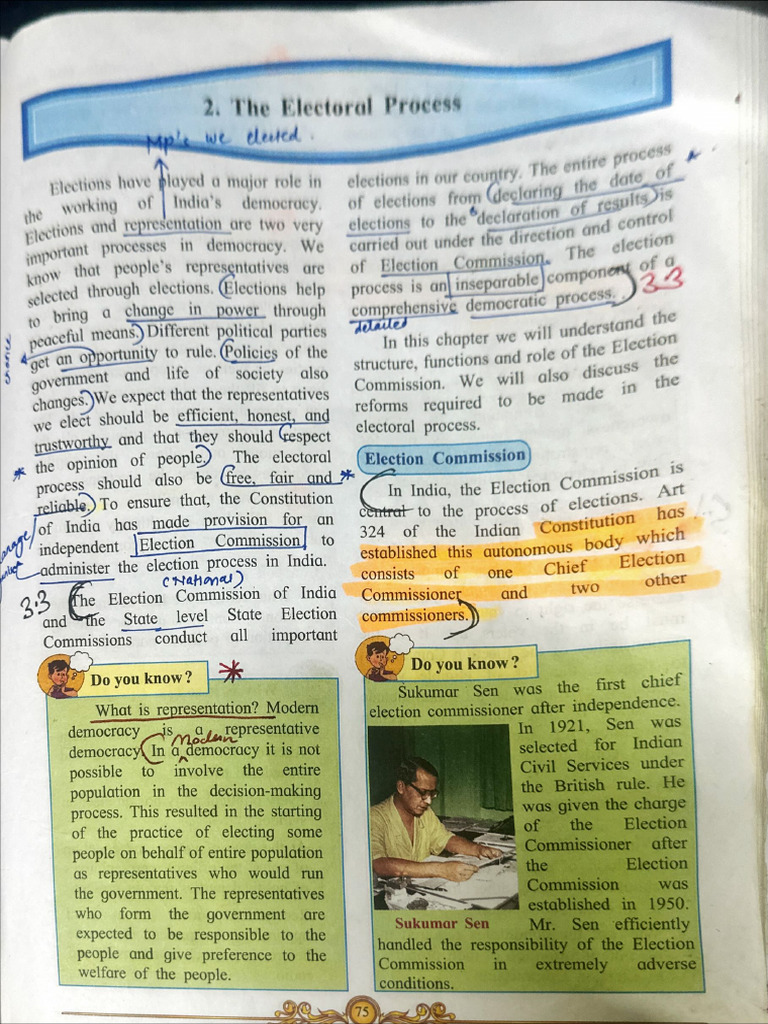 2. The Electoral Process
MP's we elected.
Elections have played a major role in
the working of India's democracy.
Elections and representation are two very
important processes in democracy. We
know that people's representatives are
selected through elections. Elections help
to bring a change in power through
peaceful means. Different political parties
chance
get an opportunity to rule. Policies of the
government and life of society also
changes. We expect that the representatives
we elect should be efficient, honest, and
trustworthy and that they should respect
* the opinion of people. The electoral
process should also be free, fair and *
reliable. To ensure that, the Constitution
of India has made provision for an
independent Election Commission to
administer the election process in India.
(National)
3.3 The Election Commission of India
and the State level State Election
Commissions conduct all important
Do you know? *
What is representation? Modern
democracy is a representative
Modern
democracy. In a democracy it is not
possible to involve the entire
population in the decision-making
process. This resulted in the starting
of the practice of electing some
people on behalf of entire population
as representatives who would run
the government. The representatives
who form the government are
expected to be responsible to the
people and give preference to the
welfare of the people.
elections in our country. The entire process
of elections from declaring the date of
elections to the declaration of results is
carried out under the direction and control
of Election Commission. The election
process is an inseparable component of a
comprehensive democratic process. 3.3
detailed
In this chapter we will understand the
structure, functions and role of the Election
Commission. We will also discuss the
reforms required to be made in the
electoral process.
Election Commission
In India, the Election Commission is
central to the process of elections. Art
324 of the Indian Constitution has
established this autonomous body which
consists of one Chief Election
Commissioner and two other
commissioners.
Do you know?
Sukumar Sen was the first chief
election commissioner after independence.
In 1921, Sen was
selected for Indian
Civil Services under
the British rule. He
was given the charge
of the Election
Commissioner after
the Election
Commission was
established in 1950.
Sukumar Sen
Mr. Sen efficiently
handled the responsibility of the Election
Commission in extremely adverse
conditions.
75